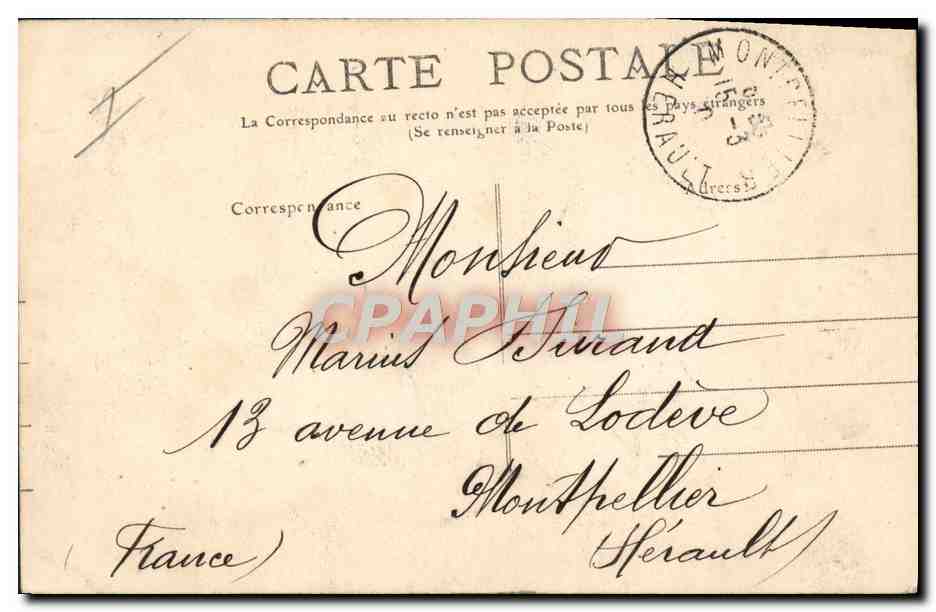 CARTE POSTALE
La Correspondance au recto n'est pas acceptée par tous les pays étrangers
(Se renseigner à la Poste)
MONTPELLIER
HERAULT
15
-3
Correspondance
Adresse
Monsieur
CPAPHIL
Marius Durand
13 avenue de Lodève
Montpellier
(France)
(Hérault)